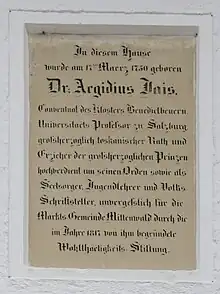 In diesem Hause
wurde am 17ten Maerz 1750 geboren
Dr. Aegidius Jais.
Conventual des Klosters Benedictbeuern
Universitaets Professor zu Salzburg
großherzoglich toskanischer Rath und
Erzieher der großherzoglichen Prinzen
hochverdient um seinen Orden sowie als
Seelsorger, Jugendlehrer und Volks
Schriftsteller, unvergeßlich für die
Markts Gemeinde Mittenwald durch die
im Jahre 1817 von ihm begründete
Wohlthaetigkeits-Stiftung.